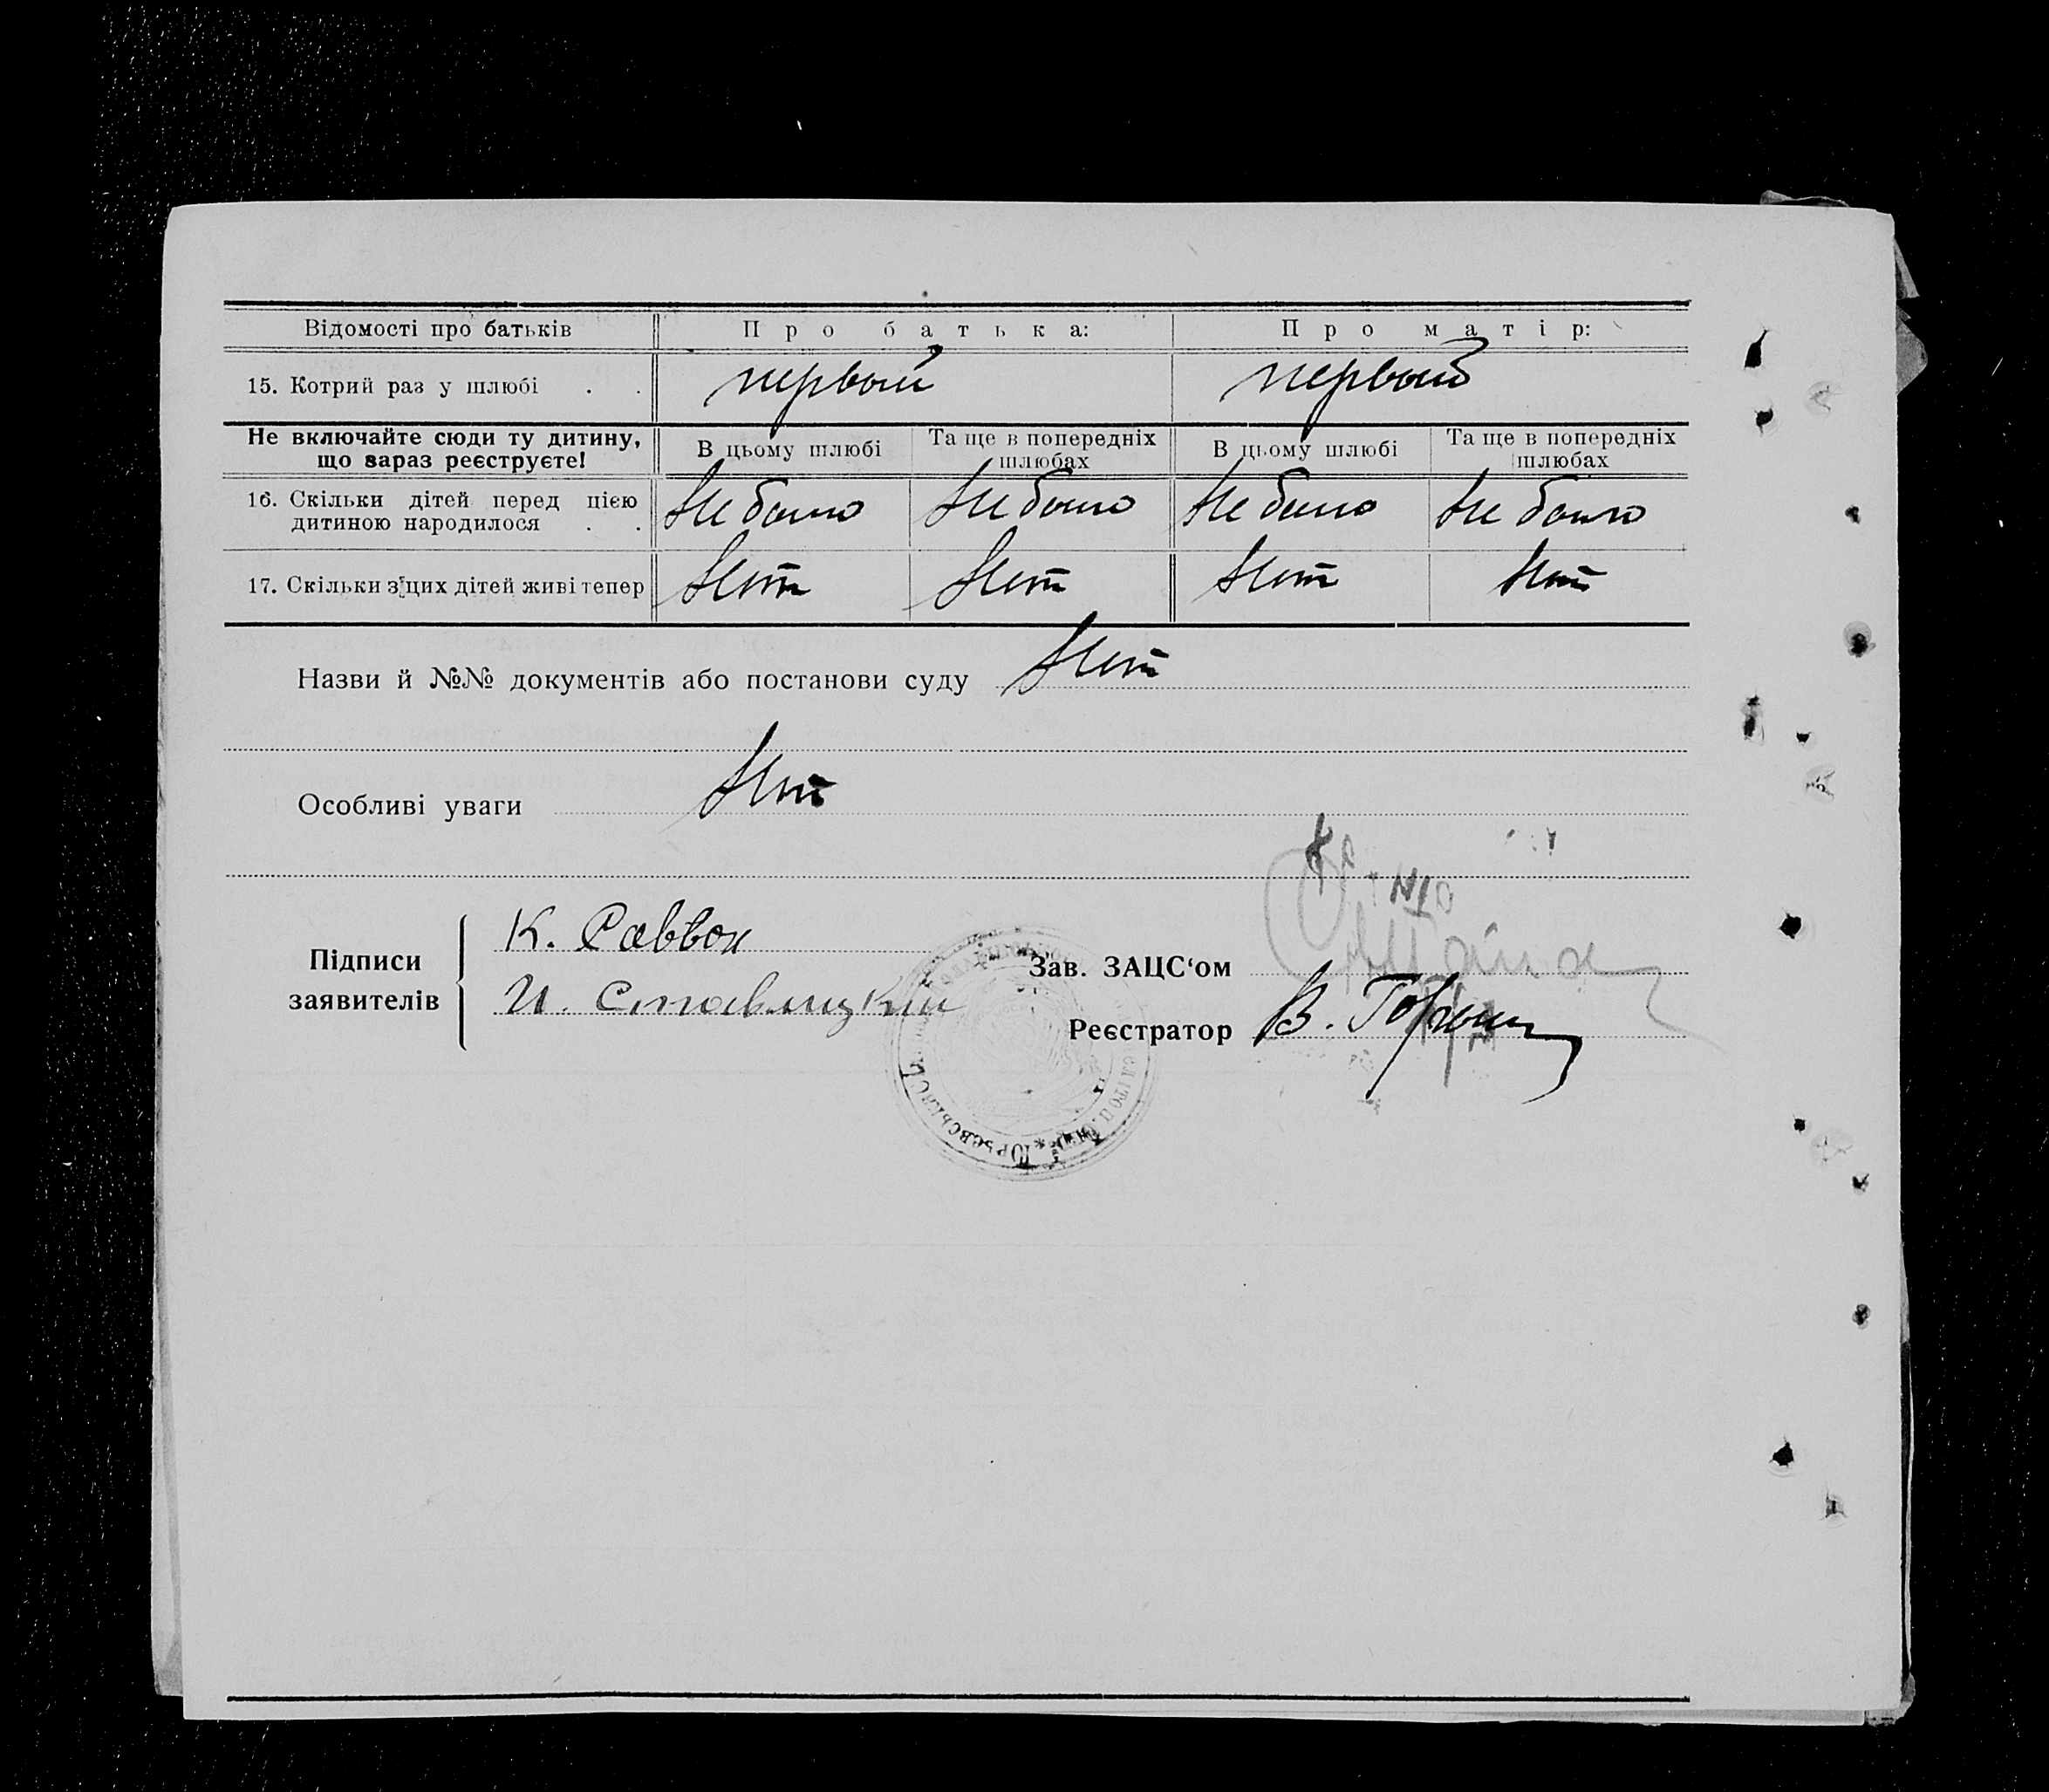 Відомості про батьків Про батька: Про матір:
15. Котрий раз у шлюбі . . первый первый
Не включайте сюди ту дитину, що зараз реєструєте! В цьому шлюбі Та ще в попередніх шлюбах В цьому шлюбі Та ще в попередніх шлюбах
16. Скільки дітей перед цією
дитиною народилося . . Не было Не было Не было Не было
17. Скільки з цих дітей живі тепер Нет Нет Нет Нет
Назви й №№ документів або постанови суду Нет
Особливі уваги Нет
Підписи заявителів
К. Саввон
И. Ставлицкий
Зав. ЗАЦС‘ом
Реєстратор В.